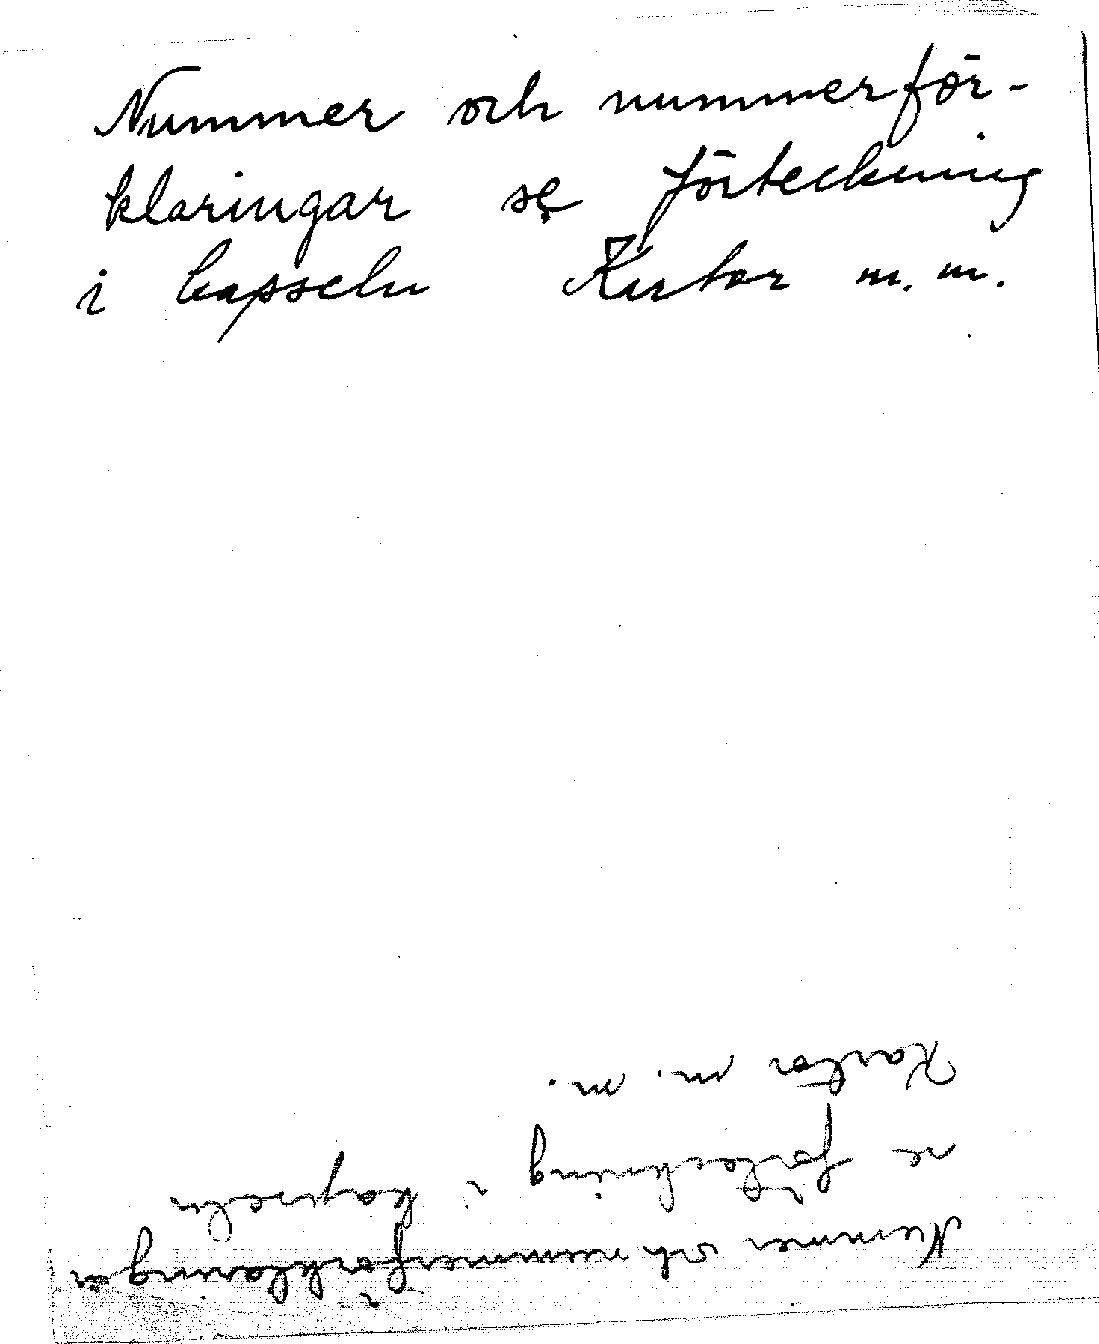 Nummer och nummerför-
klaringar se förteckning
i kapseln Kartor m.m.
Nummer och nummerförklaringar
se förteckning i kapseln
Kartor m. m.